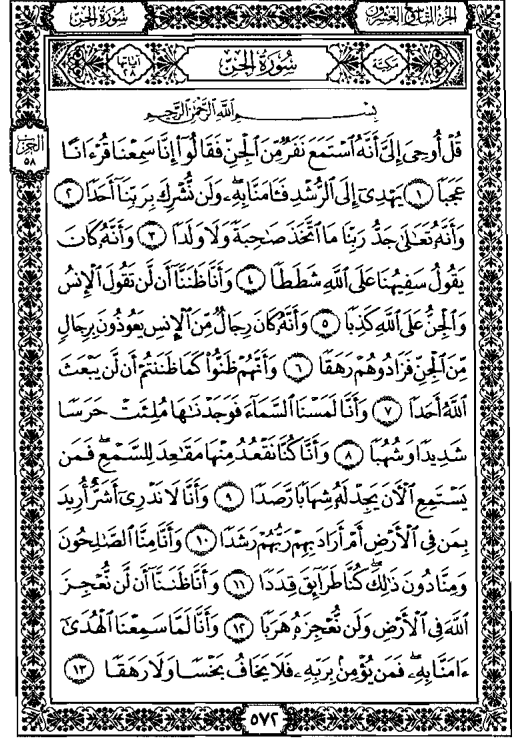 سُورَةُ الجِنّ
الجزء التاسع والعشرون
مكيّة
سُورَةُ الجِنّ
آياتها ٢٨
بِسْمِ اللَّهِ الرَّحْمَٰنِ الرَّحِيمِ
الحزب ٥٨
قُلْ أُوحِىَ إِلَىَّ أَنَّهُ ٱسْتَمَعَ نَفَرٌ مِّنَ ٱلْجِنِّ فَقَالُوٓا۟ إِنَّا سَمِعْنَا قُرْءَانًا
عَجَبًا ١ يَهْدِىٓ إِلَى ٱلرُّشْدِ فَـَٔامَنَّا بِهِۦ ۖ وَلَن نُّشْرِكَ بِرَبِّنَآ أَحَدًا ٢
وَأَنَّهُۥ تَعَـٰلَىٰ جَدُّ رَبِّنَا مَا ٱتَّخَذَ صَـٰحِبَةً وَلَا وَلَدًا ٣ وَأَنَّهُۥ كَانَ
يَقُولُ سَفِيهُنَا عَلَى ٱللَّهِ شَطَطًا ٤ وَأَنَّا ظَنَنَّآ أَن لَّن تَقُولَ ٱلْإِنسُ
وَٱلْجِنُّ عَلَى ٱللَّهِ كَذِبًا ٥ وَأَنَّهُۥ كَانَ رِجَالٌ مِّنَ ٱلْإِنسِ يَعُوذُونَ بِرِجَالٍ
مِّنَ ٱلْجِنِّ فَزَادُوهُمْ رَهَقًا ٦ وَأَنَّهُمْ ظَنُّوا۟ كَمَا ظَنَنتُمْ أَن لَّن يَبْعَثَ
ٱللَّهُ أَحَدًا ٧ وَأَنَّا لَمَسْنَا ٱلسَّمَآءَ فَوَجَدْنَـٰهَا مُلِئَتْ حَرَسًا
شَدِيدًا وَشُهُبًا ٨ وَأَنَّا كُنَّا نَقْعُدُ مِنْهَا مَقَـٰعِدَ لِلسَّمْعِ ۖ فَمَن
يَسْتَمِعِ ٱلْـَٔانَ يَجِدْ لَهُۥ شِهَابًا رَّصَدًا ٩ وَأَنَّا لَا نَدْرِىٓ أَشَرٌّ أُرِيدَ
بِمَن فِى ٱلْأَرْضِ أَمْ أَرَادَ بِهِمْ رَبُّهُمْ رَشَدًا ١٠ وَأَنَّا مِنَّا ٱلصَّـٰلِحُونَ
وَمِنَّا دُونَ ذَٰلِكَ ۖ كُنَّا طَرَآئِقَ قِدَدًا ١١ وَأَنَّا ظَنَنَّآ أَن لَّن نُّعْجِزَ
ٱللَّهَ فِى ٱلْأَرْضِ وَلَن نُّعْجِزَهُۥ هَرَبًا ١٢ وَأَنَّا لَمَّا سَمِعْنَا ٱلْهُدَىٰٓ
ءَامَنَّا بِهِۦ ۖ فَمَن يُؤْمِنۢ بِرَبِّهِۦ فَلَا يَخَافُ بَخْسًا وَلَا رَهَقًا ١٣
٥٧٢